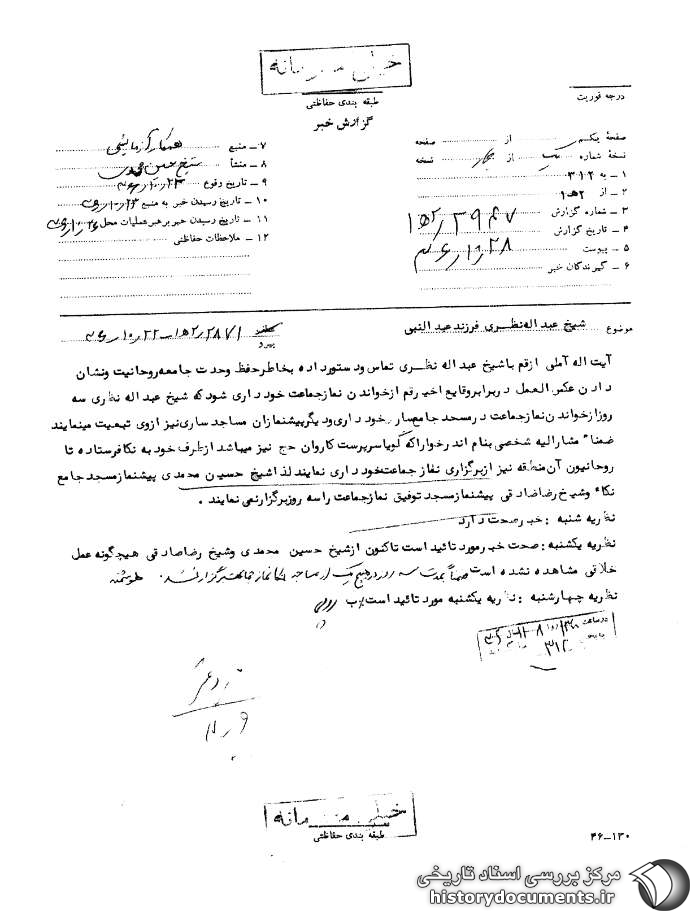 خیلی محرمانه
طبقه بندی حفاظتی
گزارش خبر
درجه فوریت
صفحهٔ یکم از صفحه
نسخهٔ شماره یک از چهار نسخه
۱ ـ به ۳۱۲
۲ ـ از ۱ه۲
۳ ـ شماره گزارش ۱ه۲/۳۹۴۷
۴ ـ تاریخ گزارش ۲۸/۱۰/۴۶
۵ ـ پیوست
۶ ـ گیرندگان خبر
۷ ـ منبع همکار آزمایشی
۸ ـ منشأ شیخ حسین محمدی
۹ ـ تاریخ وقوع ۲۳/۱۰/
۱۰ ـ تاریخ رسیدن خبر به منبع ۲۳/۱۰/
۱۱ ـ تاریخ رسیدن خبر برهبر عملیات محل
۱۲ ـ ملاحظات حفاظتی
موضوع شیخ عبد اله نظری فرزند عبد النبی
پیرو ۲۸۷۱/۱ه۲ـ۲۲/۱۰/
آیت اله آملی ازقم باشیخ عبد اله نظری تماس ودستورداده بخاطرحفظ وحدت جامعه روحانیت ونشان
دادن عکس العمل دربرابروقایع اخیرقم ازخواندن نمازجماعت خود داری شودکه شیخ عبد اله نظری سه
روزازخواندن نمازجماعت درمسجد جامع ساری خود داری ودیگرپیشنمازان مساجد ساری نیز ازوی تبعیت مینمایند
ضمناً مشارالیه شخصی بنام اندرخوارا که گویاسرپرست کاروان حج نیز میباشد ازطرف خود به نکا فرستاده تا
روحانیون آن منطقه نیز ازبرگزاری نماز جماعت خود داری نمایند لذا شیخ حسین محمدی پیشنمازمسجد جامع
نکاء وشیخ رضاصادقی پیشنمازمسجد توفیق نمازجماعت را سه روزبرگزارنمی نمایند .
نظریه شنبه : خبر صحت دارد
نظریه یکشنبه : صحت خبرمورد تائید است تاکنون ازشیخ حسین محمدی وشیخ رضاصادقی هیچگونه عمل
خلافی مشاهده نشده است ضمناً بمدت سه روز در هیچ یک از مساجد نکا نماز جماعت برگزار نشد .
نظریه چهارشنبه : نظریه یکشنبه مورد تائید است
۳۱۲
خیلی محرمانه
طبقه بندی حفاظتی
۴۶ـ۱۳۰
مرکز بررسی اسناد تاریخی
historydocuments.ir